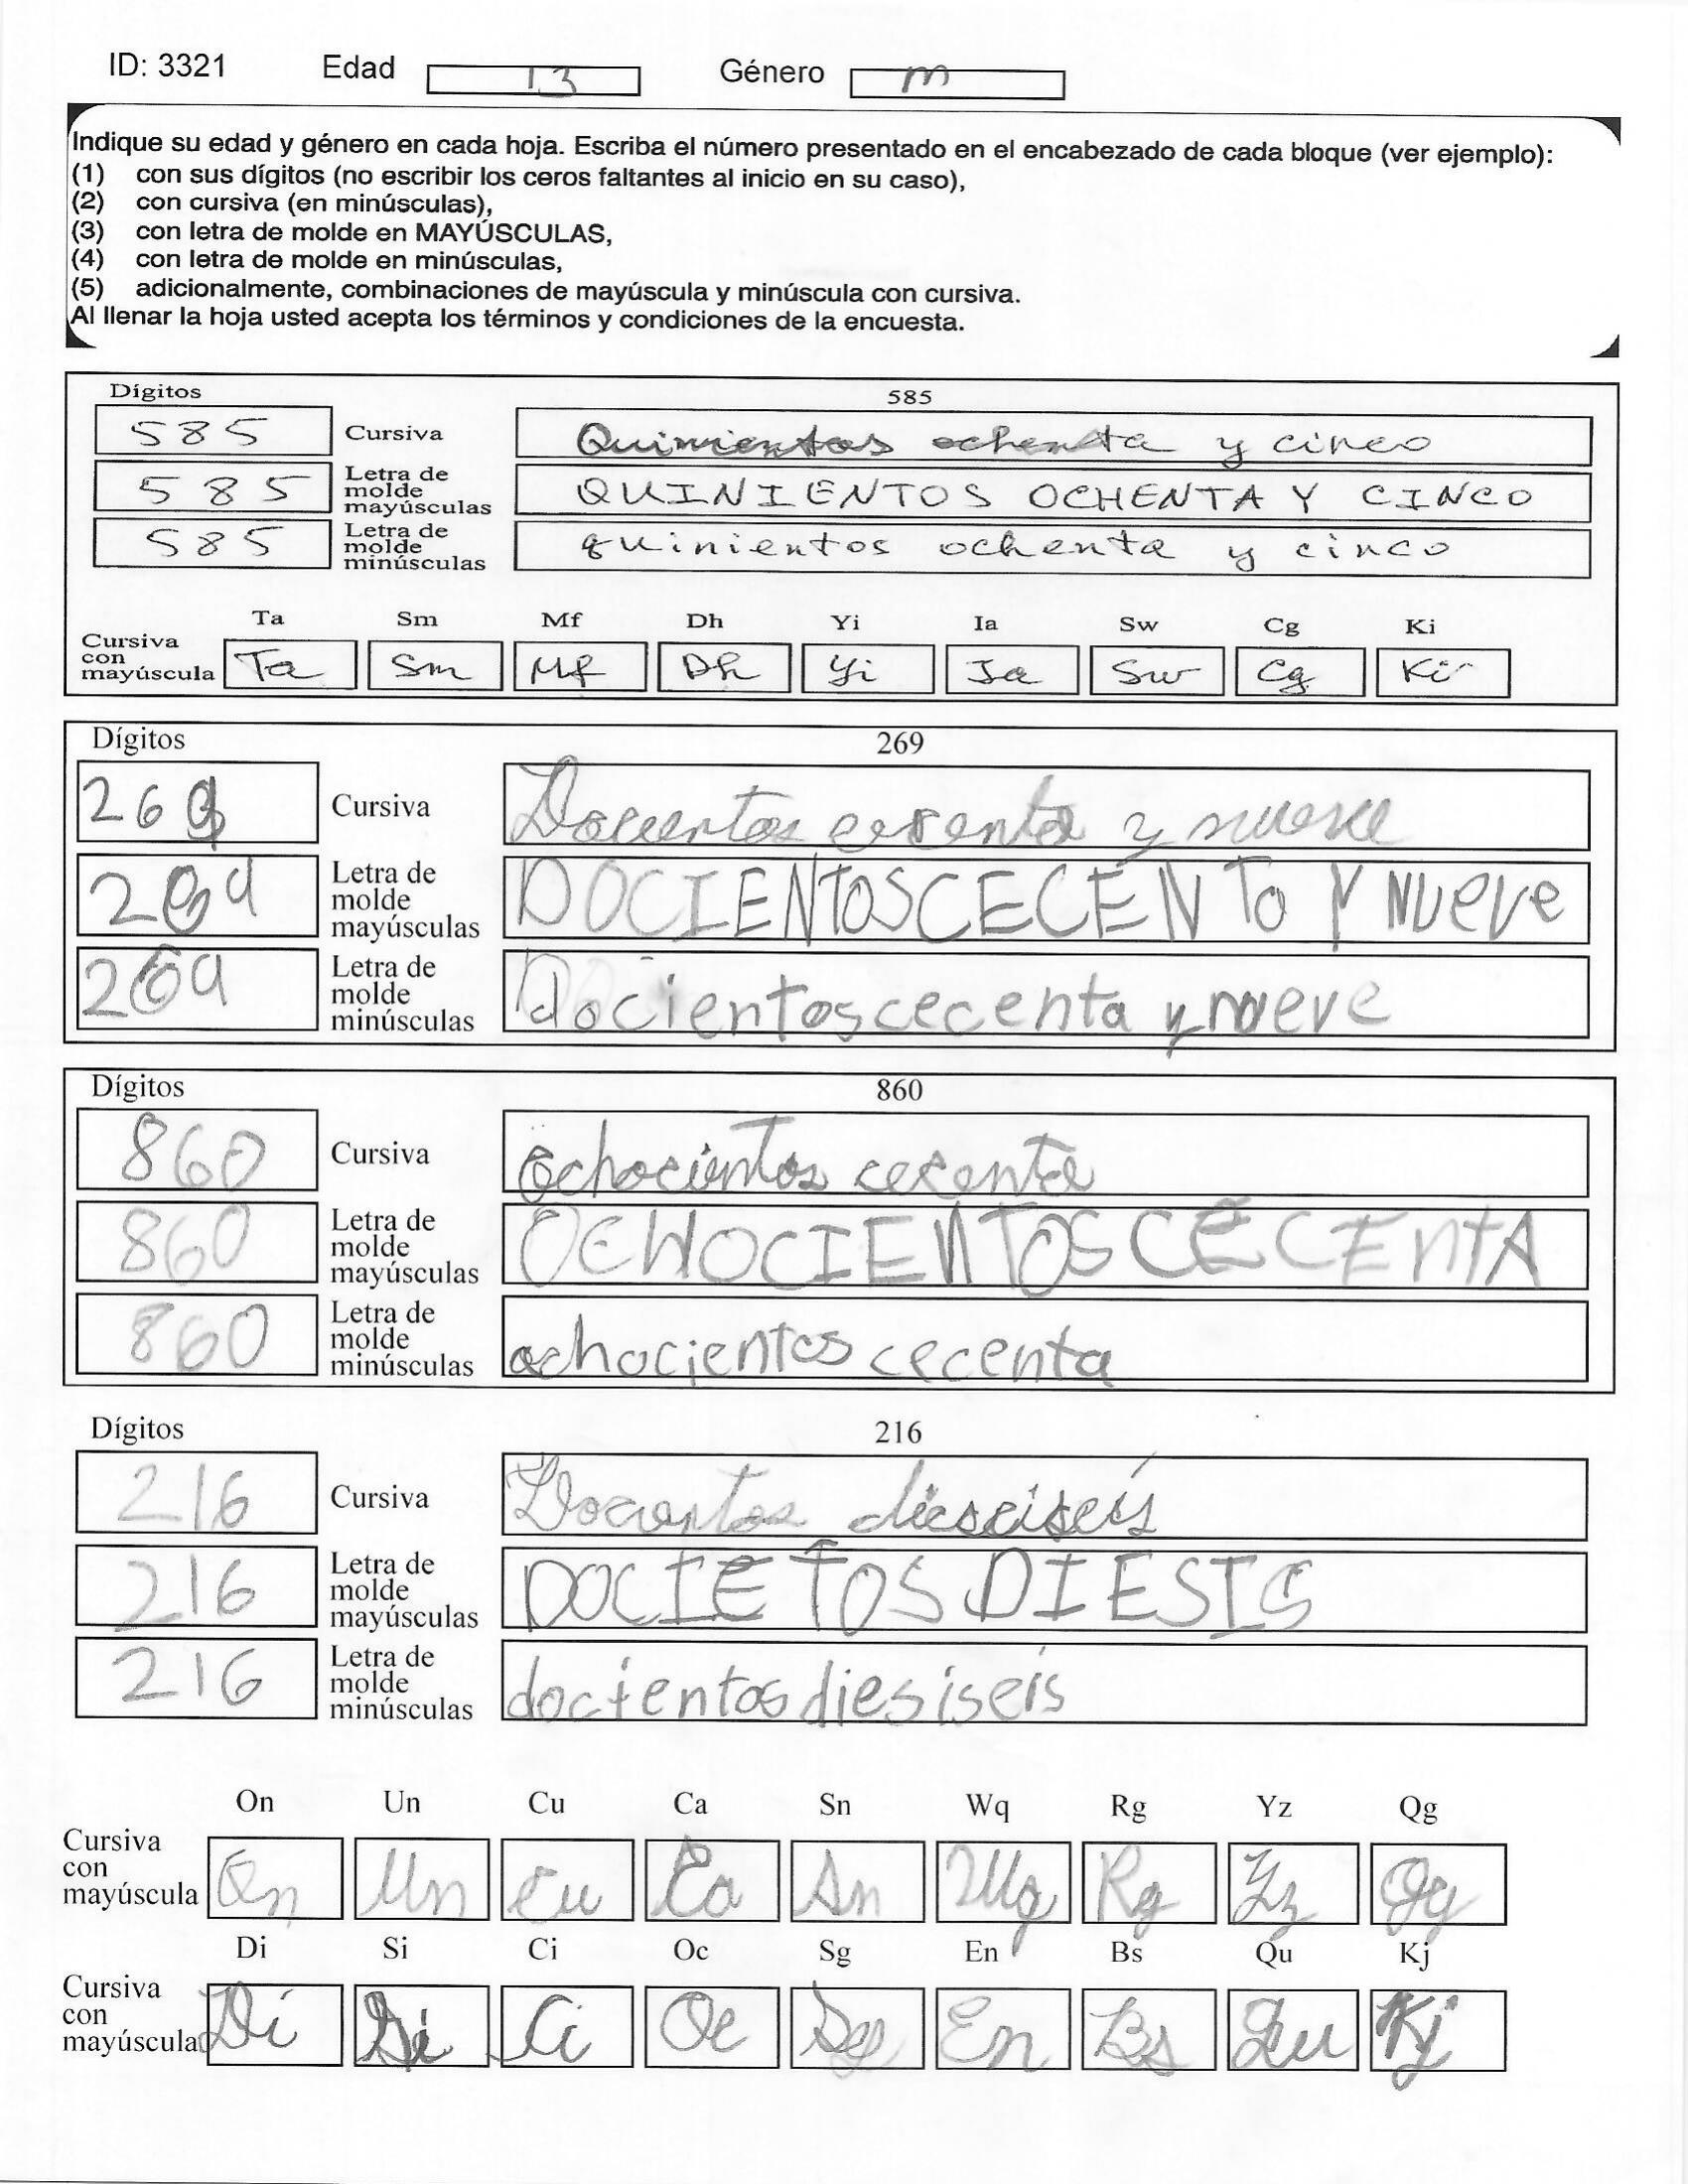 ID: 3321 Edad 13 Género m
Indique su edad y género en cada hoja. Escriba el número presentado en el encabezado de cada bloque (ver ejemplo):
(1) con sus dígitos (no escribir los ceros faltantes al inicio en su caso),
(2) con cursiva (en minúsculas),
(3) con letra de molde en MAYÚSCULAS,
(4) con letra de molde en minúsculas,
(5) adicionalmente, combinaciones de mayúscula y minúscula con cursiva.
Al llenar la hoja usted acepta los términos y condiciones de la encuesta.
Dígitos 585
585 Cursiva Quinientos ochenta y cinco
585 Letra de molde mayúsculas QUINIENTOS OCHENTA Y CINCO
585 Letra de molde minúsculas quinientos ochenta y cinco
Ta Sm Mf Dh Yi Ia Sw Cg Ki
Cursiva con mayúscula Ta Sm Mf Dh Yi Ia Sw Cg Ki
Dígitos 269
269 Cursiva Docientos cecenta y nueve
269 Letra de molde mayúsculas DOCIENTOS CECENTO Y NUeVe
269 Letra de molde minúsculas docientos cecenta y nueve
Dígitos 860
860 Cursiva ochocientos cecenta
860 Letra de molde mayúsculas OCHOCIENTOS CECEntA
860 Letra de molde minúsculas ochocientos cecenta
Dígitos 216
216 Cursiva Docientos dieseiseis
216 Letra de molde mayúsculas DOCIETOS DIESIS
216 Letra de molde minúsculas docientos diesiseis
On Un Cu Ca Sn Wq Rg Yz Qg
Cursiva con mayúscula On Un Cu Ca Sn Wq Rg Yz Qg
Di Si Ci Oc Sg En Bs Qu Kj
Cursiva con mayúscula Di Si Ci Oc Sg En Bs Qu Kj